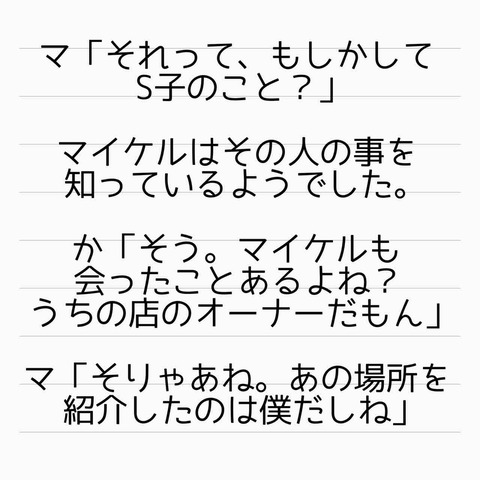 マ「それって、もしかして
S子のこと？」
マイケルはその人の事を
知っているようでした。
か「そう。マイケルも
会ったことあるよね？
うちの店のオーナーだもん」
マ「そりゃあね。あの場所を
紹介したのは僕だしね」